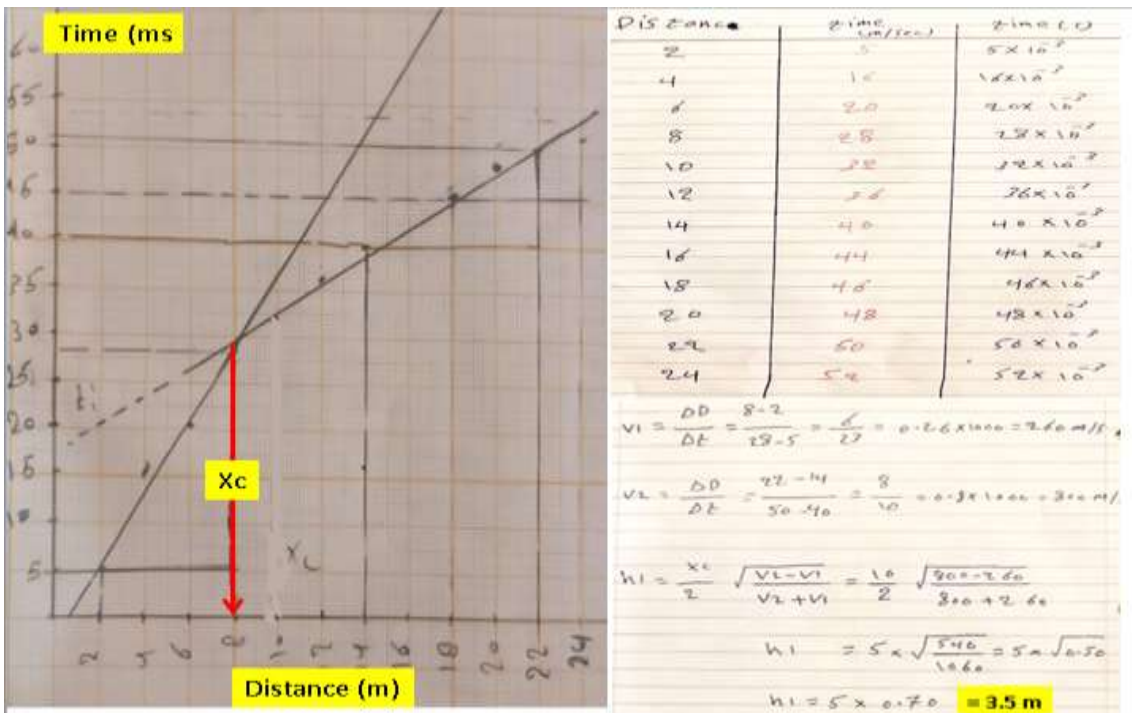 Time (ms
60
55
50
45
40
35
30
25
20
15
10
5
Xc
Xc
2 4 6 8 10 12 14 16 18 20 22 24
Distance (m)
Distance time (m/sec) time (s)
2 5 5×10⁻³
4 16 16×10⁻³
6 20 20×10⁻³
8 28 28×10⁻³
10 32 32×10⁻³
12 36 36×10⁻³
14 40 40×10⁻³
16 44 44×10⁻³
18 46 46×10⁻³
20 48 48×10⁻³
22 50 50×10⁻³
24 52 52×10⁻³
V1 = ΔD/Δt = 8-2/28-5 = 6/23 = 0.26×1000 = 260 m/s
V2 = ΔD/Δt = 22-14/50-40 = 8/10 = 0.8×1000 = 800 m/
h1 = Xc/2 √(V2-V1/V2+V1) = 10/2 √(800-260/800+260)
h1 = 5×√(540/1060) = 5×√0.50
h1 = 5×0.70 = 3.5 m